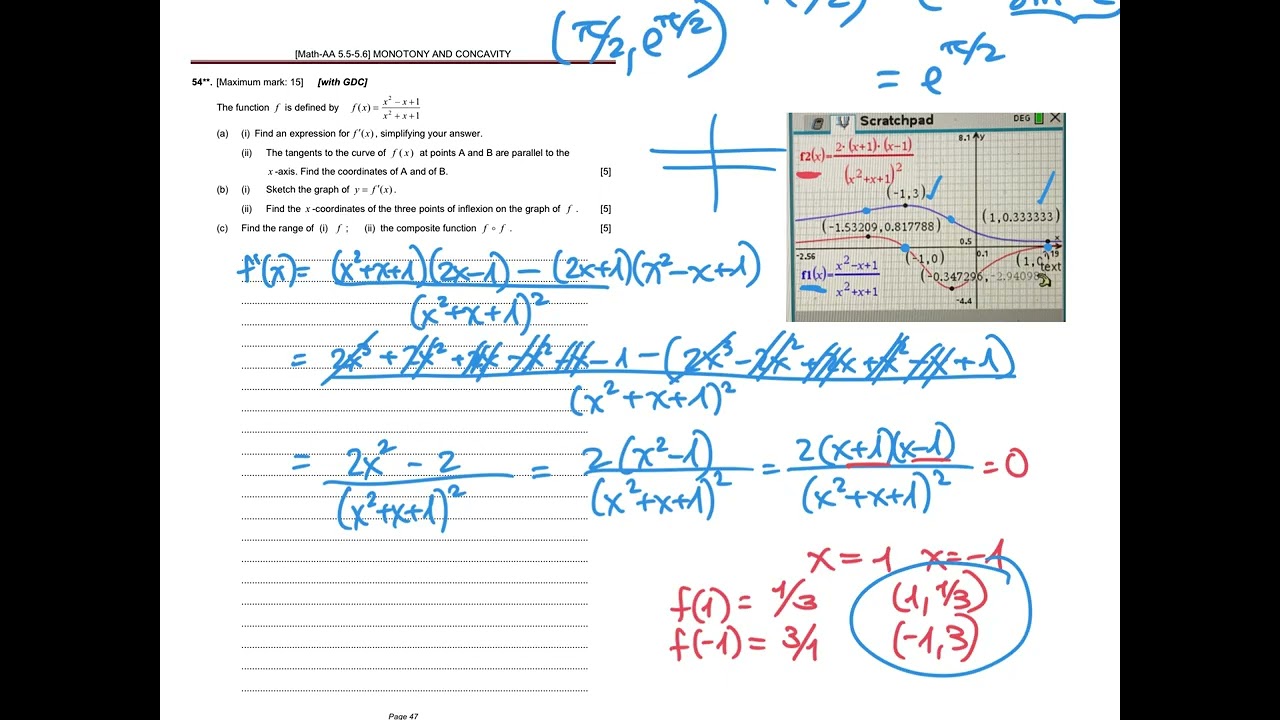 (π/2, e^π/2)
= e^π/2
[Math-AA 5.5-5.6] MONOTONY AND CONCAVITY
54**. [Maximum mark: 15] [with GDC]
The function f is defined by f(x) = (x² − x + 1)/(x² + x + 1)
(a) (i) Find an expression for f′(x), simplifying your answer.
(ii) The tangents to the curve of f(x) at points A and B are parallel to the
x-axis. Find the coordinates of A and of B. [5]
(b) (i) Sketch the graph of y = f′(x).
(ii) Find the x-coordinates of the three points of inflexion on the graph of f. [5]
(c) Find the range of (i) f; (ii) the composite function f ∘ f. [5]
Scratchpad DEG
8.1 y
f2(x)=2·(x+1)·(x−1)/(x²+x+1)²
(-1,3)
(1,0.333333)
(-1.53209,0.817788)
0.5
x
-2.56
0.1
(-1,0)
text
f1(x)=x²−x+1/x²+x+1
(-0.347296,-2.9409
-4.4
f'(x) = (x²+x+1)(2x−1) − (2x+1)(x²−x+1)
(x²+x+1)²
= 2x³ + 2x² + 2x − x² − x − 1 − (2x³ − 2x² + 2x + x² − x + 1)
(x²+x+1)²
= 2x² − 2 = 2(x²−1) = 2(x+1)(x−1) = 0
(x²+x+1)² (x²+x+1)² (x²+x+1)²
x = 1 x = −1
f(1) = 1/3 (1, 1/3)
f(-1) = 3/1 (-1, 3)
Page 47